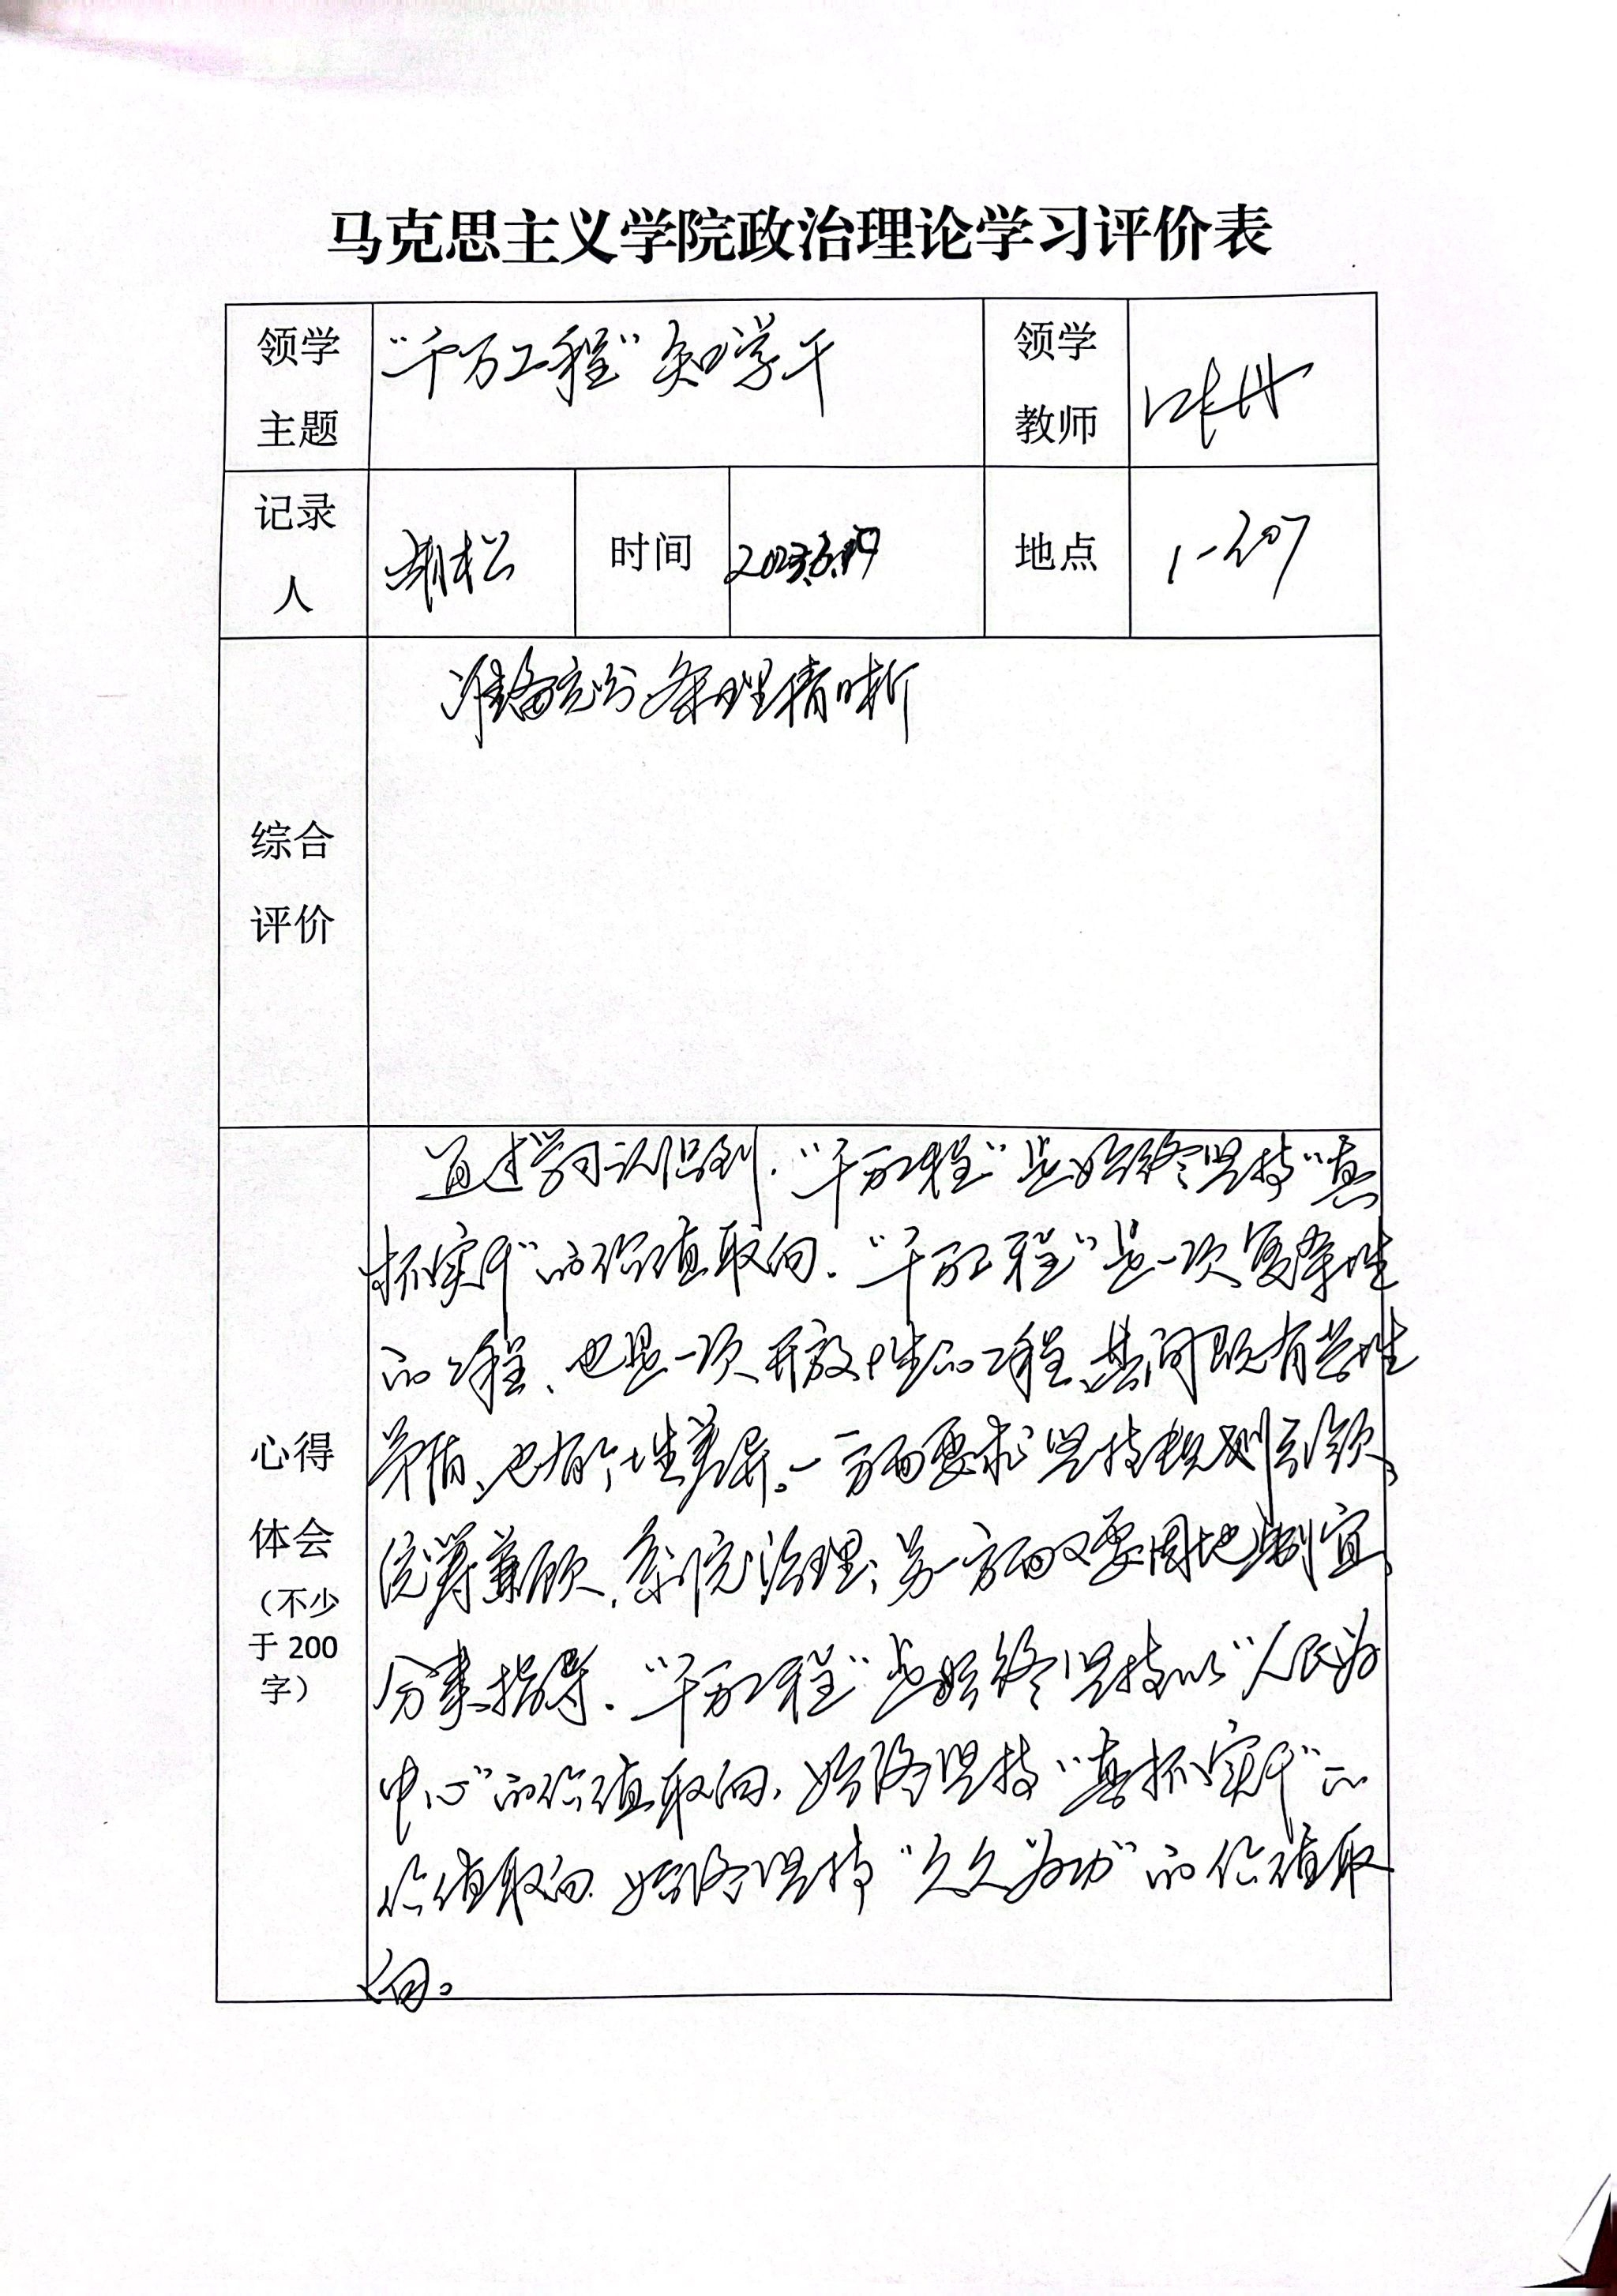 马克思主义学院政治理论学习评价表
领学
主题
“千万工程”知学干
领学
教师
记录
人
胡松
时间
2023.6.
地点
1-207
综合
评价
准备充分 条理清晰
心得
体会
（不少
于 200
字）
通过学习认识到.“千万工程”是始终坚持“真
抓实干”的价值取向.“千万工程”是一次复杂性
的工程、也是一次开放性的工程,其间既有共性
矛盾、也有个性差异。一方面要求坚持规划引领、
统筹兼顾、系统治理;另一方面又要因地制宜、
分类指导.“千万工程”是始终坚持以“人民为
中心”的价值取向,始终坚持“真抓实干”的
价值取向.始终坚持“久久为功”的价值取
向。